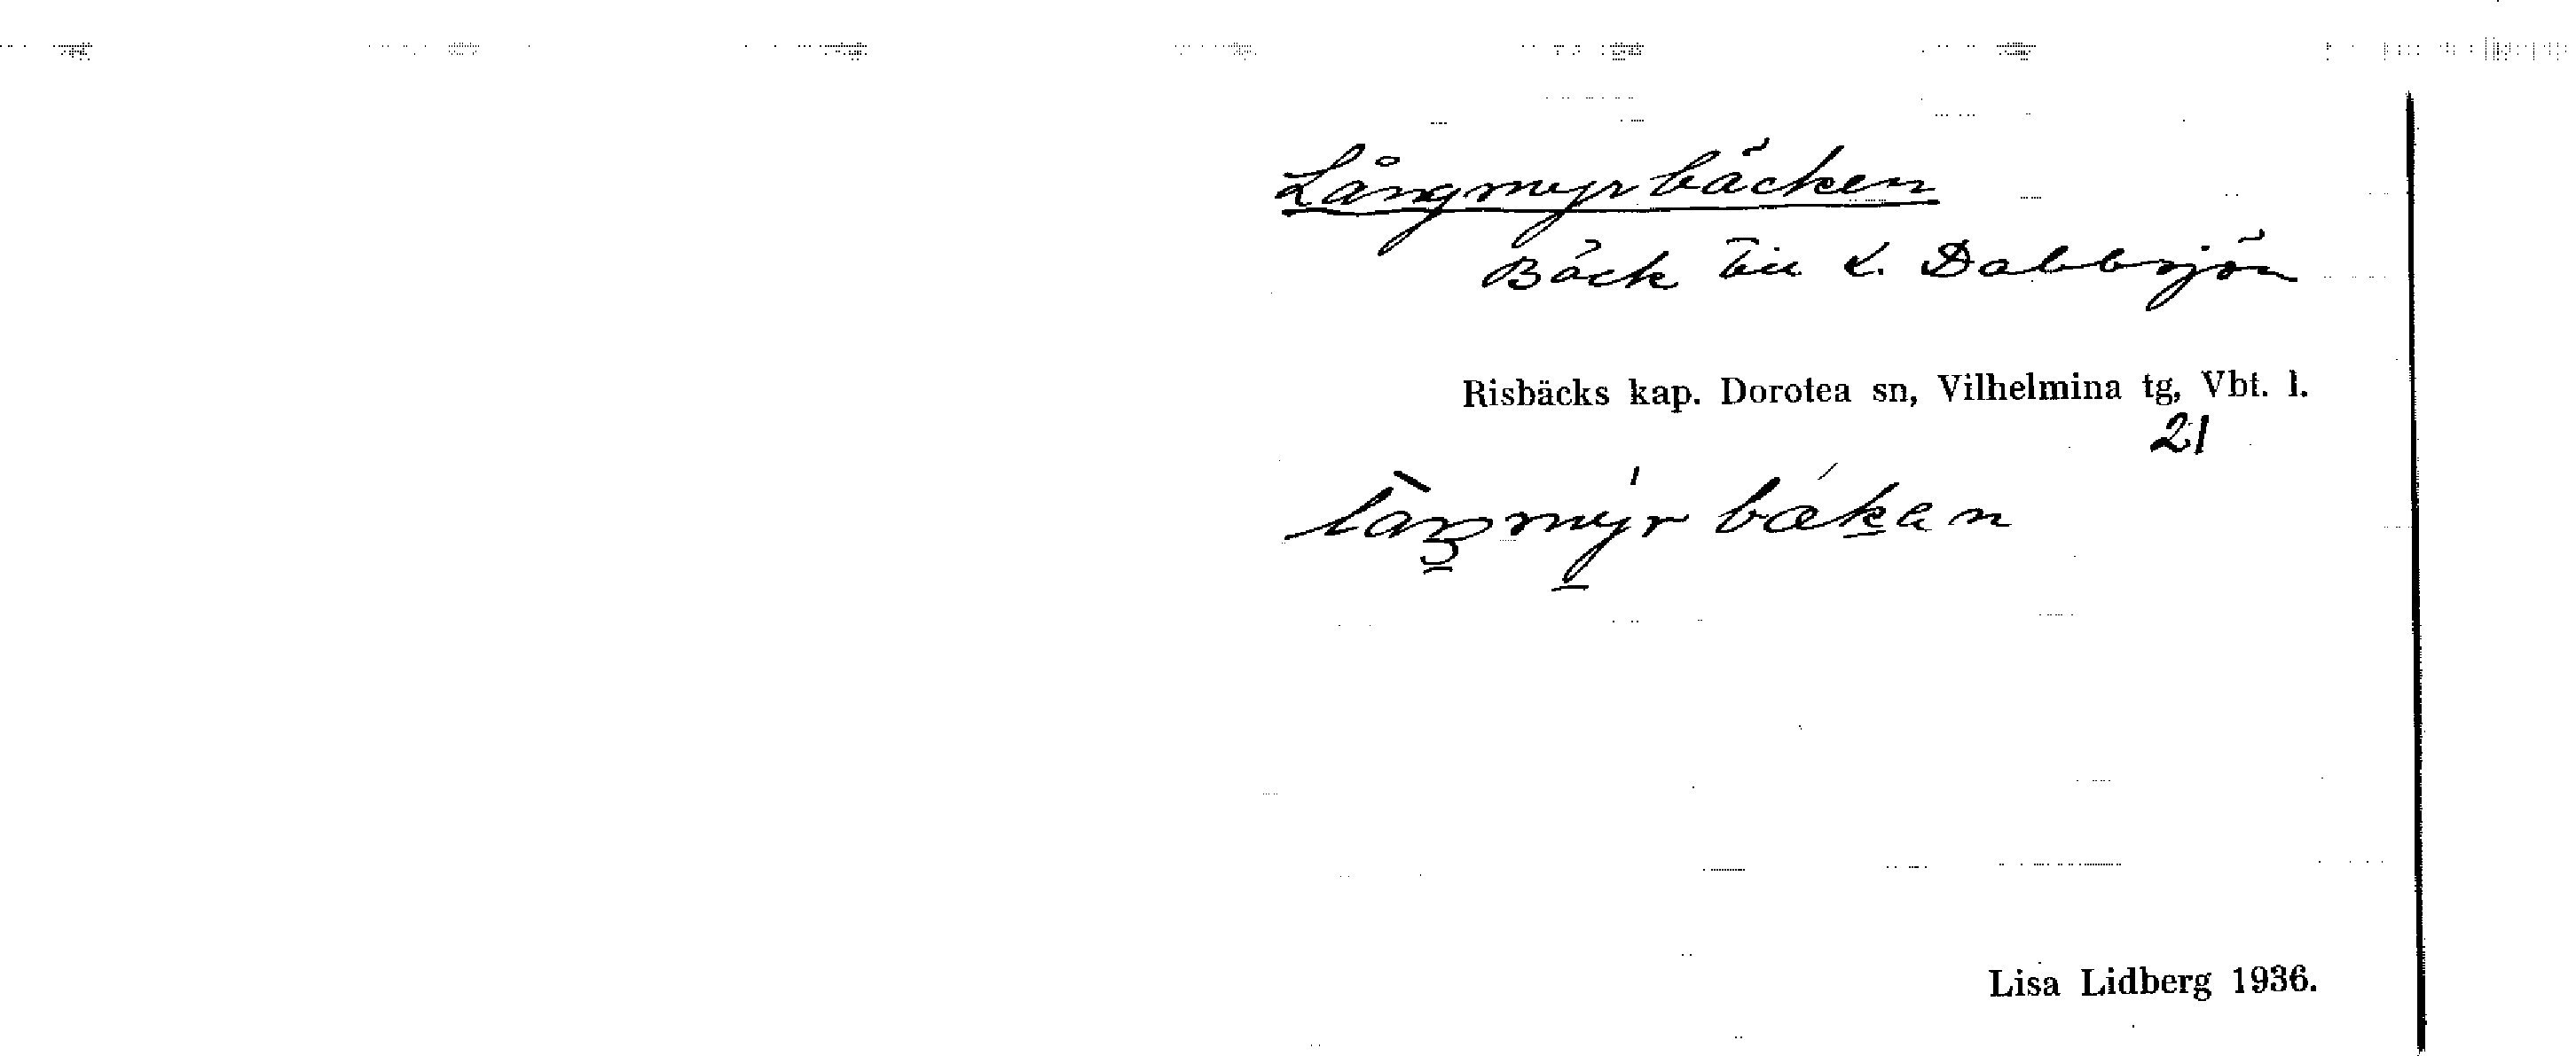 Långmyrbäcken
Bäck till L. Dabbsjön
Risbäcks kap. Dorotea sn, Vilhelmina tg, Vbt. l.
21
Lisa Lidberg 1936.